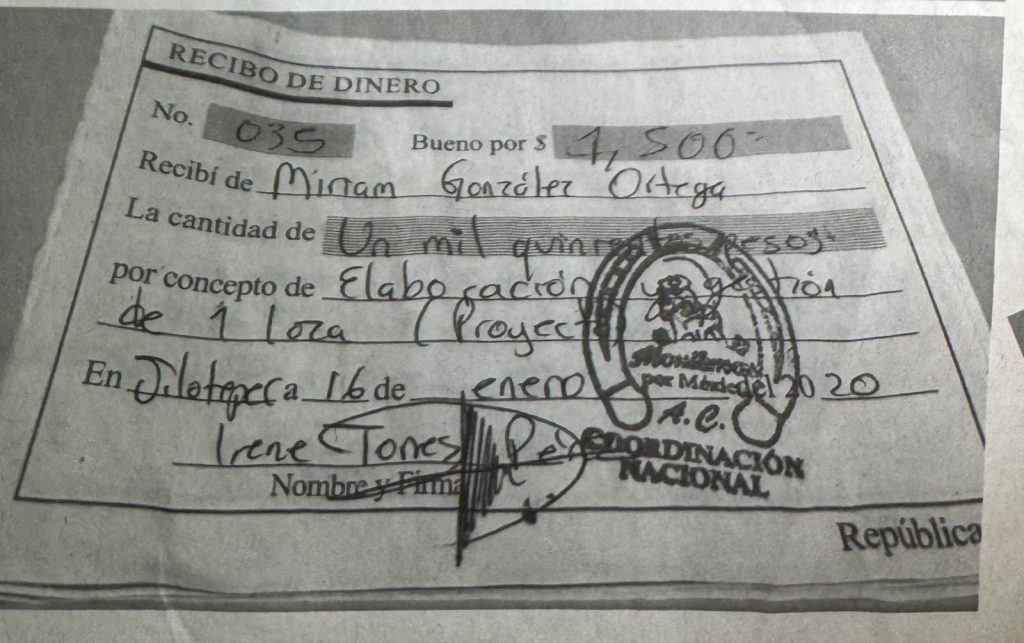 RECIBO DE DINERO
No. 035 Bueno por $ 1,500-
Recibí de Miriam González Ortega
La cantidad de Un mil quinientos pesos.
por concepto de Elaboración y gestión
de 1 loza (Proyecto)
En Jilotepec a 16 de enero del 20 20
Irene Torres
Nombre y Firma
por México
A.C.
COORDINACIÓN
NACIONAL
República